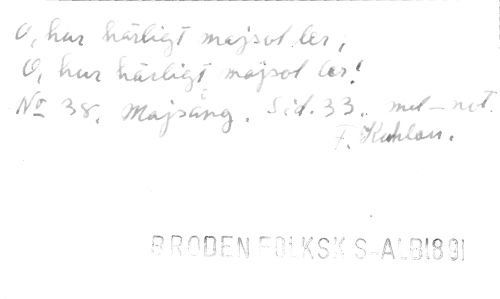 O, hur härligt majsol ler,
O, hur härligt majsol ler!
No 38. Majsång. Sid. 33. mel-not.
F. Kuhlau.
BRODEN FOLKSK S-ALB1891